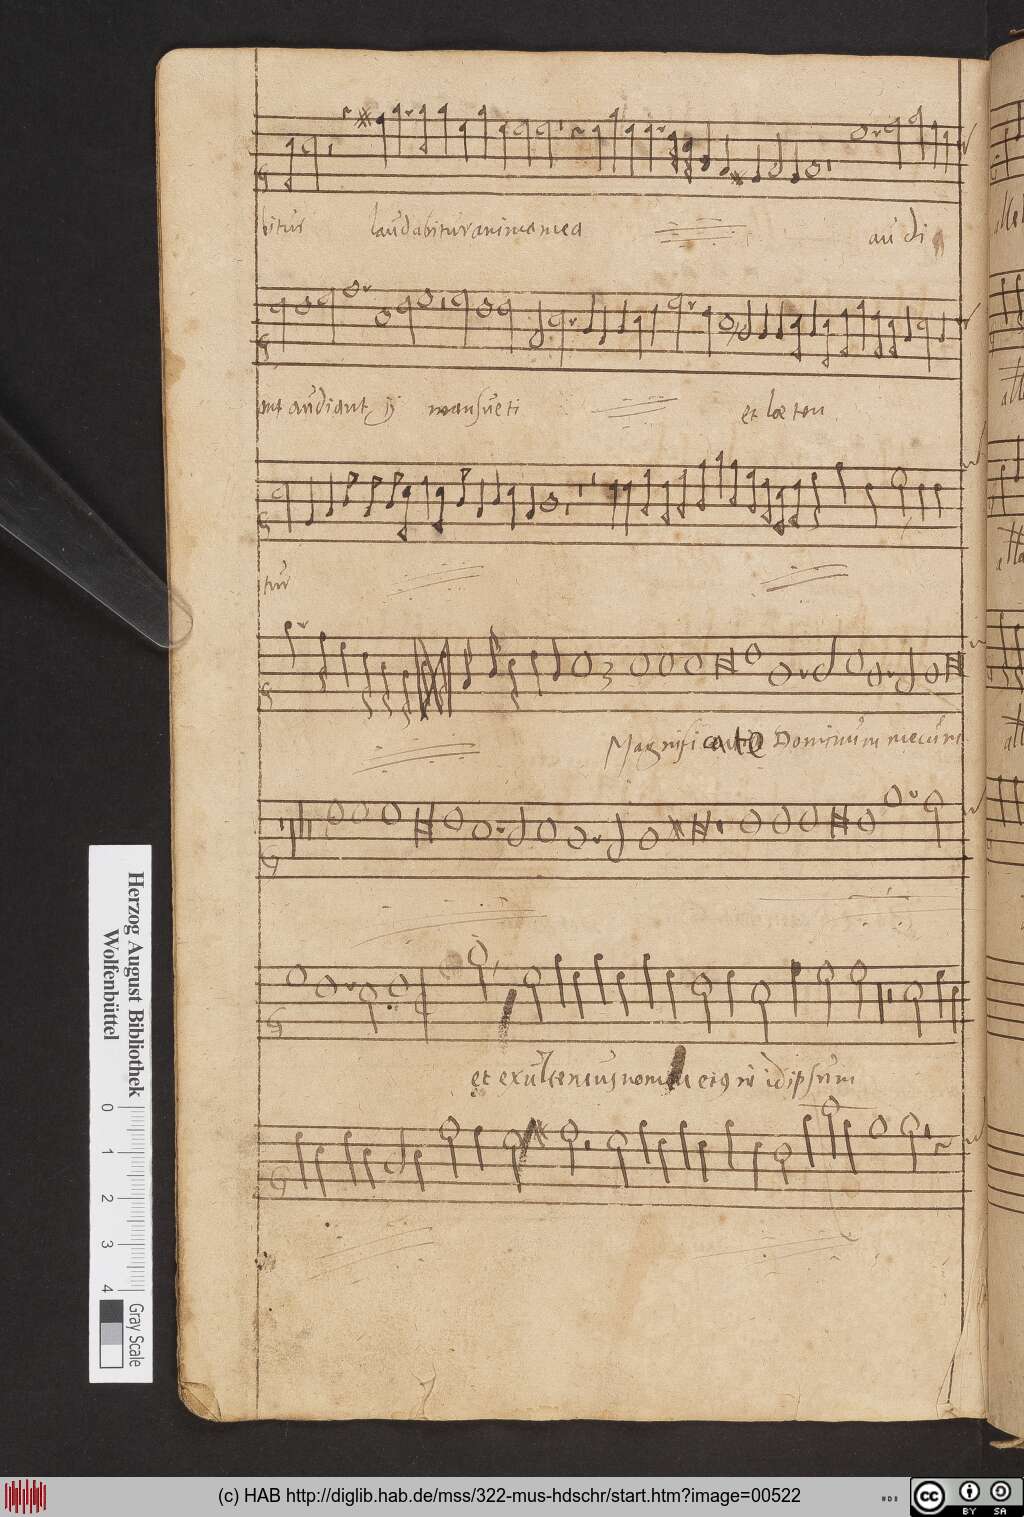 bitur laudabitur anima mea audi
ant audiant ij mansueti et læten
tur
Magnificate Dominum mecum
et exultemus nomen eius in idipsum
Herzog August Bibliothek
Wolfenbüttel
0 1 2 3 4
Gray Scale
(c) HAB http://diglib.hab.de/mss/322-mus-hdschr/start.htm?image=00522
cc BY SA